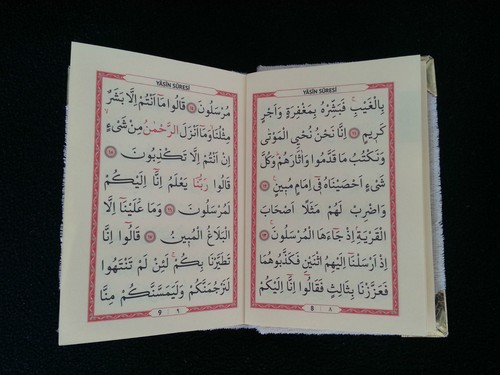 YÂSÎN SÛRESİ
بِالْغَيْبِۚ فَبَشِّرْهُ بِمَغْفِرَةٍ وَاَجْرٍ
كَرِيمٍ ﴿١١﴾ اِنَّا نَحْنُ نُحْيِي الْمَوْتٰى
وَنَكْتُبُ مَا قَدَّمُوا وَاٰثَارَهُمْۜ وَكُلَّ
شَيْءٍ اَحْصَيْنَاهُ فِٓي اِمَامٍ مُبِينٍ ﴿١٢﴾
وَاضْرِبْ لَهُمْ مَثَلًا اَصْحَابَ
الْقَرْيَةِ اِذْ جَٓاءَهَا الْمُرْسَلُونَۚ ﴿١٣﴾
اِذْ اَرْسَلْنَٓا اِلَيْهِمُ اثْنَيْنِ فَكَذَّبُوهُمَا
فَعَزَّزْنَا بِثَالِثٍ فَقَالُٓوا اِنَّٓا اِلَيْكُمْ
8 ٨
YÂSÎN SÛRESİ
مُرْسَلُونَ ﴿١٤﴾ قَالُوا مَٓا اَنْتُمْ اِلَّا بَشَرٌ
مِثْلُنَا وَمَٓا اَنْزَلَ الرَّحْمٰنُ مِنْ شَيْءٍ
اِنْ اَنْتُمْ اِلَّا تَكْذِبُونَ ﴿١٥﴾
قَالُوا رَبُّنَا يَعْلَمُ اِنَّٓا اِلَيْكُمْ
لَمُرْسَلُونَ ﴿١٦﴾ وَمَا عَلَيْنَٓا اِلَّا
الْبَلَاغُ الْمُبِينُ ﴿١٧﴾ قَالُٓوا اِنَّا
تَطَيَّرْنَا بِكُمْۚ لَئِنْ لَمْ تَنْتَهُوا
لَنَرْجُمَنَّكُمْ وَلَيَمَسَّنَّكُمْ مِنَّا
9 ٩